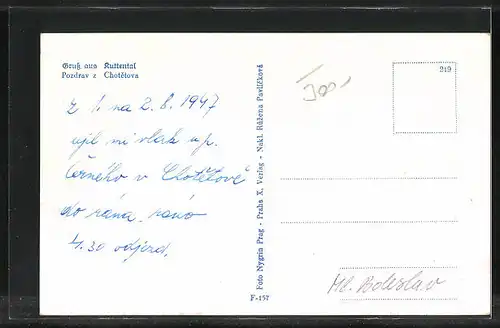 Gruß aus Kuttental
Pozdrav z Chotětova
z 1. na 2. 8. 1947
ujel mi vlak u p.
Černého v Chotětově
do rána. ráno
4.30 odjezd.
Foto Nygrin Prag - Praha X. Verlag - Nakl. Růžena Pavlíčková
F-157
300,-
219
Ml. Boleslav